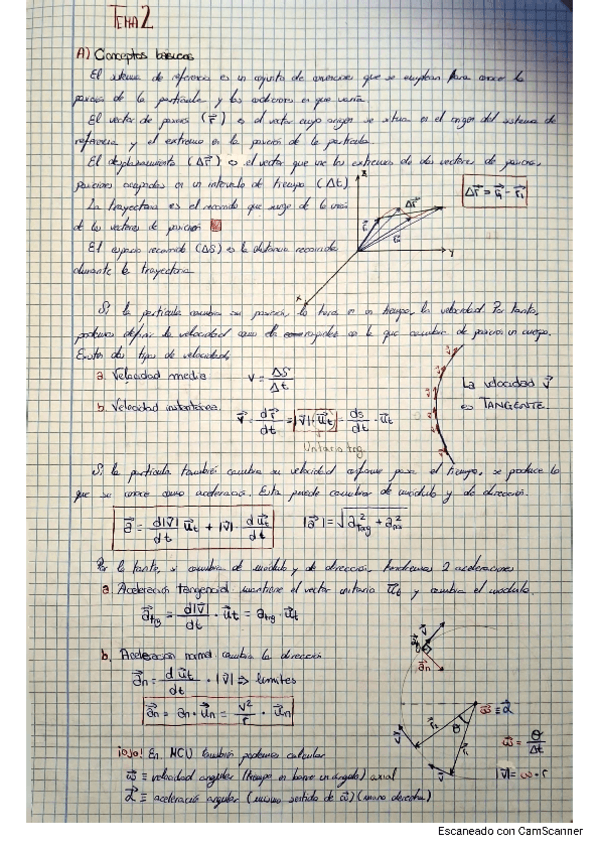 TEMA 2
A) Conceptos básicos
El sistema de referencia es un conjunto de que se emplean para conocer la
posición de la partícula y las condiciones en que varía.
El vector de posición (r⃗) es el vector cuyo origen se sitúa en el origen del sistema de
referencia y el extremo en la posición de la partícula.
El desplazamiento (Δr⃗) es el vector que une los extremos de dos vectores de posición,
posiciones ocupadas en un intervalo de tiempo (Δt)
Δr⃗ = r⃗ - r⃗₁
La trayectoria es el recorrido que surge de la unión
de los vectores de posición
El espacio recorrido (ΔS) es la distancia recorrida
durante la trayectoria
z
Δr⃗
y
x
Si la partícula cambia su posición, lo hará en un tiempo, la velocidad. Por tanto,
podemos definir la velocidad como la rapidez con la que cambia de posición un cuerpo.
Existen dos tipos de velocidad,
a. Velocidad media V = ΔS/Δt
b. Velocidad instantánea v⃗ = dr⃗/dt = |v⃗| · u⃗t = ds/dt · u⃗t
Unitario tg
La velocidad v⃗
es TANGENTE
Si la partícula también cambia su velocidad conforme pasa el tiempo, se produce lo
que se conoce como aceleración. Esta puede cambiar de módulo y de dirección.
a⃗ = d|v⃗|/dt u⃗t + |v⃗| · du⃗t/dt |a⃗| = √(a²tag + a²na)
Por lo tanto, si cambia de módulo y de dirección, tendremos 2 aceleraciones
a. Aceleración tangencial mantiene el vector unitario u⃗t y cambia el módulo.
a⃗tg = d|v⃗|/dt · u⃗t = atg · u⃗t
b. Aceleración normal cambia la dirección
a⃗n = du⃗t/dt · |v⃗| ⇒ límites
a⃗n = an · u⃗n = v²/r · u⃗n
v⃗
a⃗n
ω⃗ ≡ α⃗
θ
v⃗
ω⃗ = θ/Δt
|v⃗| = ω · r
¡ojo! En MCU también podemos calcular
ω⃗ ≡ velocidad angular (tiempo en barrer un ángulo) axial
α⃗ ≡ aceleración angular (mismo sentido de ω⃗) (mano derecha)
Escaneado con CamScanner